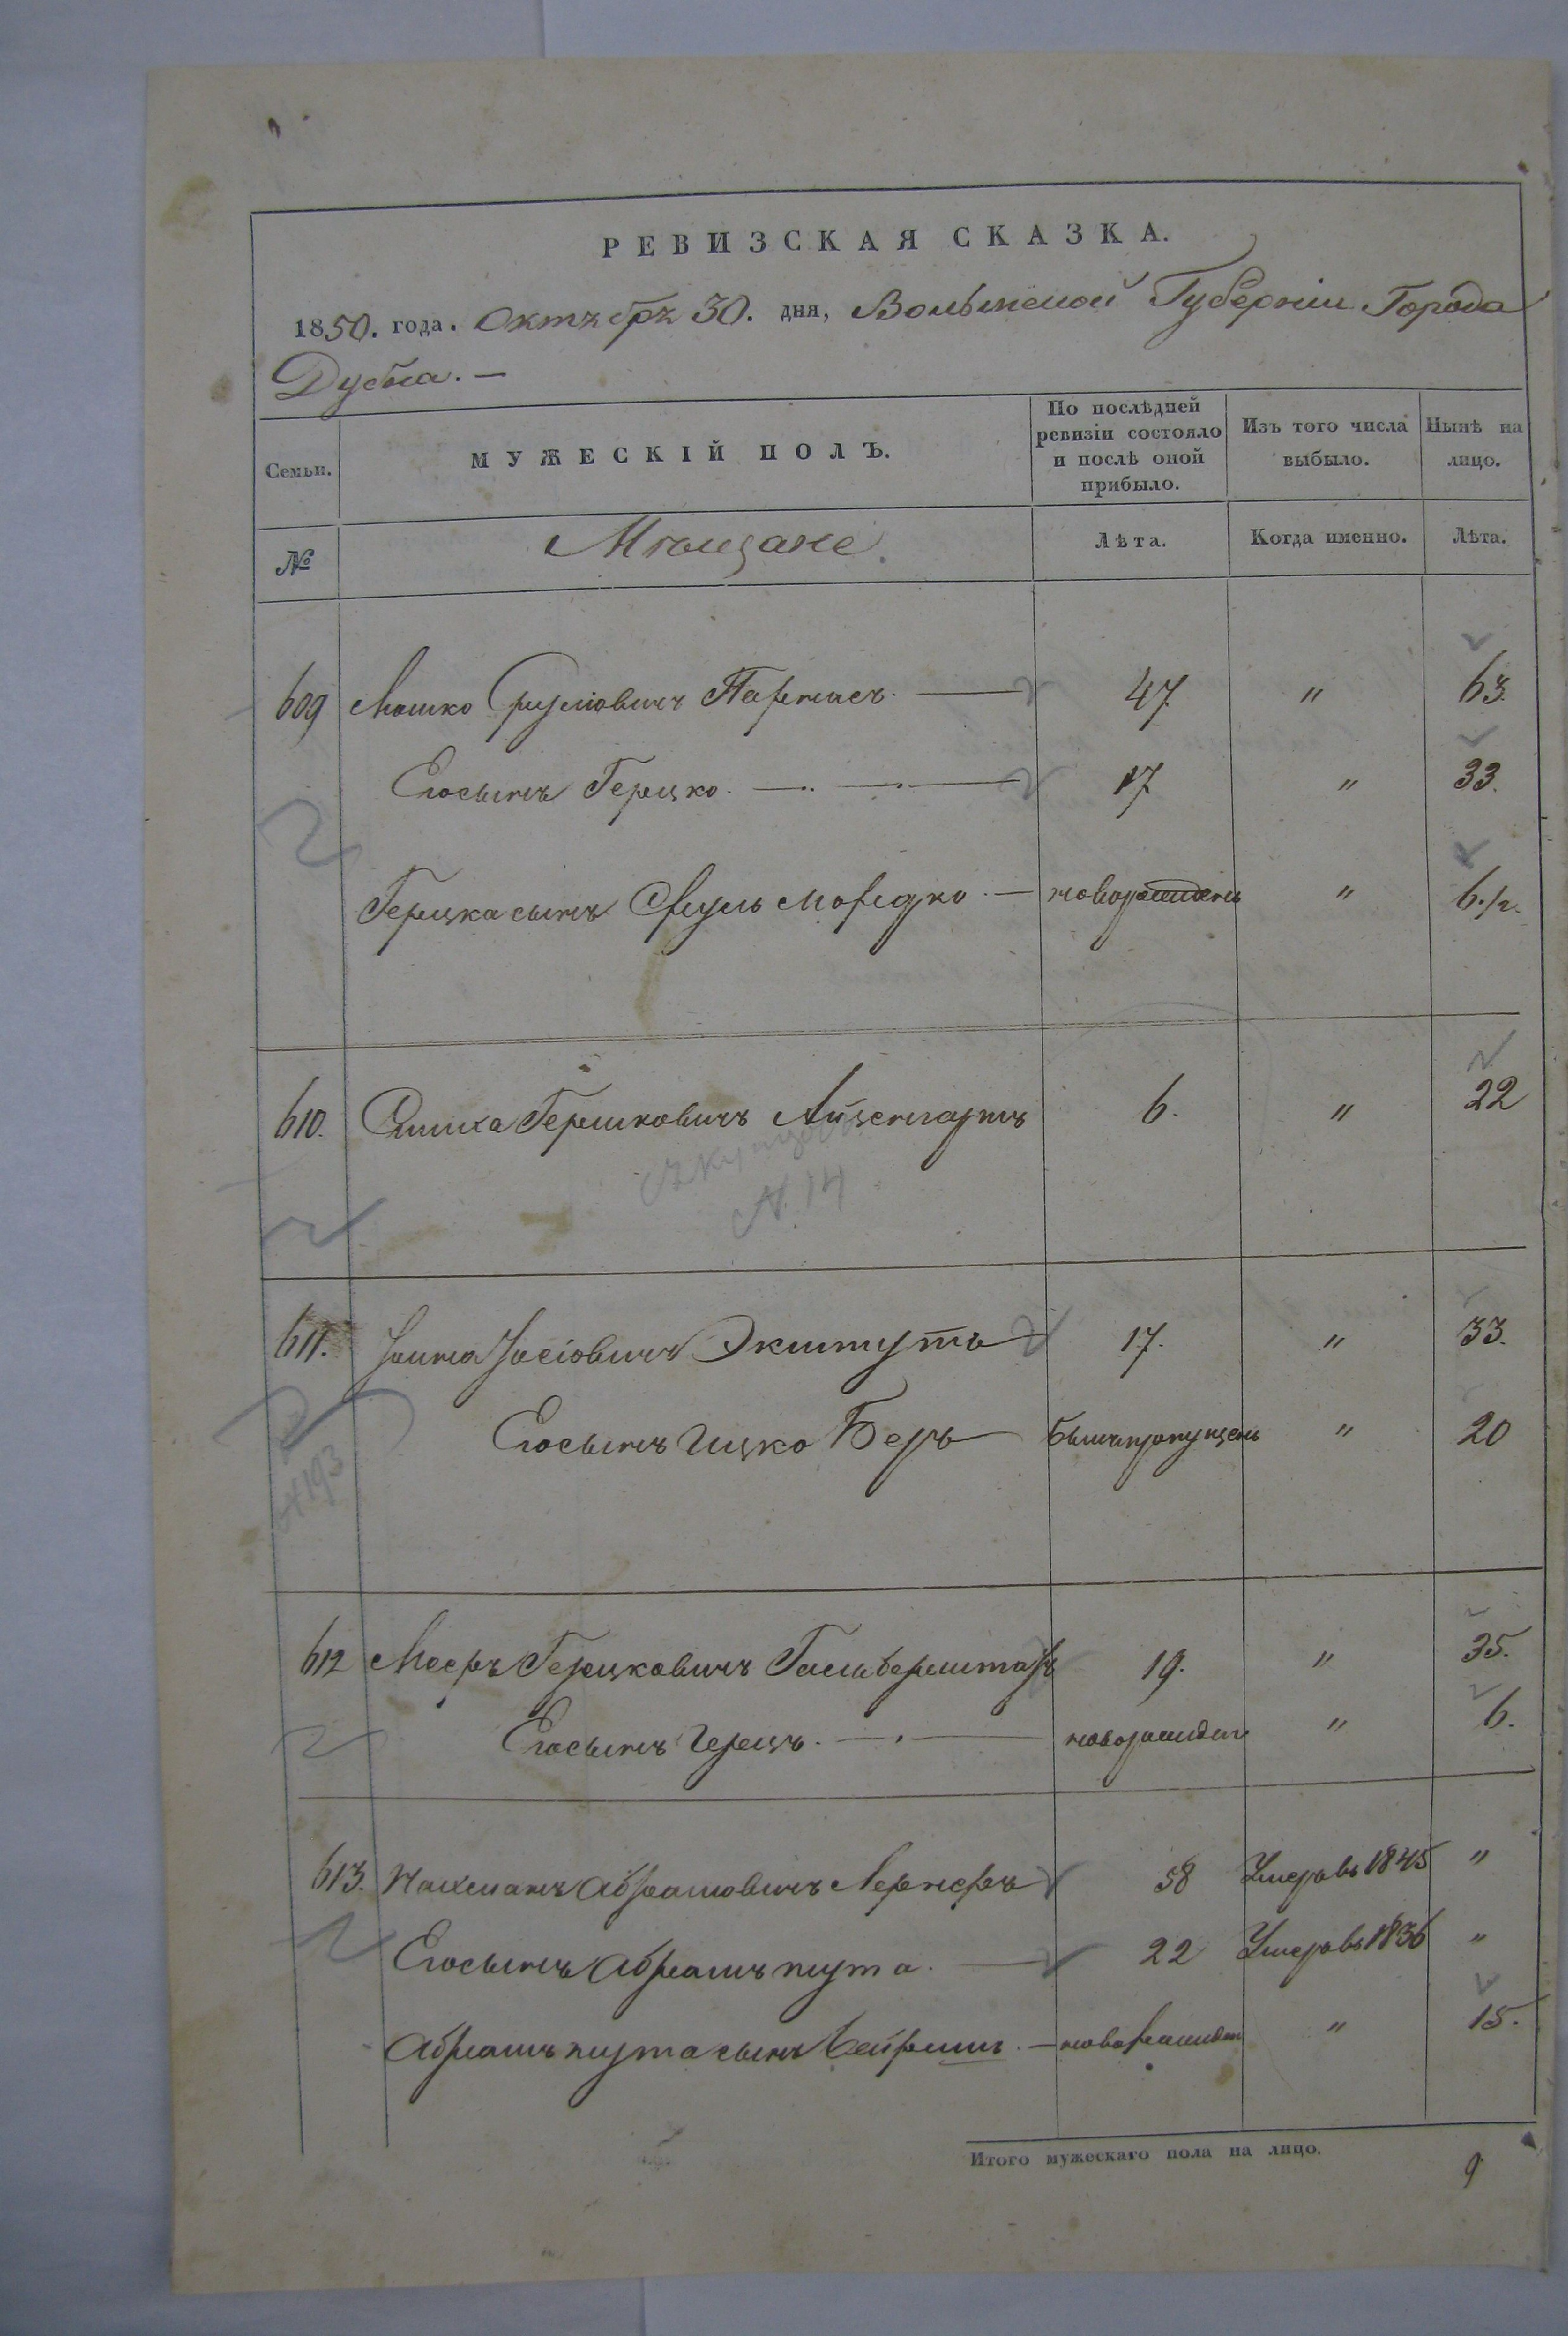 РЕВИЗСКАЯ СКАЗКА.
1850. года. Октября 30. дня, Волынской Губерніи Города
Дубна. —
Семьи.
МУЖЕСКІЙ ПОЛЪ.
По послѣдней ревизіи состояло и послѣ оной прибыло.
Изъ того числа выбыло.
Нынѣ на лицо.
№
Мѣщане.
Лѣта.
Когда именно.
Лѣта.
609 Мошко Срулiовичъ — 47 " 63.
Его сынъ Герцко — 17 " 33.
Герцка сынъ Сруль Мордко — новорожденъ " 6.
610. Симха Гершковичъ 6. " 22
N. 14
611. Іосіовичъ 17. " 33.
Его сынъ Ицко Беръ былъ пропущенъ " 20
N 193
612 Мееръ Герцковичъ Гальберштатъ 19. " 35.
Его сынъ Герецъ. — новорожден " 6.
613. Нахманъ Абрамовичъ Лернеръ 58 Умеръ въ 1845 "
Его сынъ Абрамъ нута. 22 Умеръ въ 1836 "
Абрамъ нута сынъ — новорожден " 15.
Итого мужескаго пола на лицо.
9